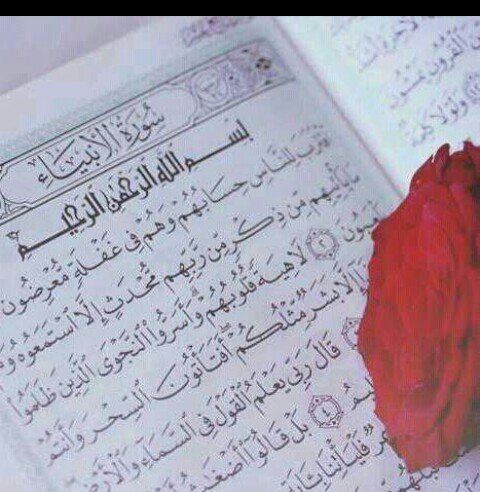 سُورَةُ الأَنْبِيَاءِ
بِسْمِ اللَّهِ الرَّحْمَٰنِ الرَّحِيمِ
اقْتَرَبَ لِلنَّاسِ حِسَابُهُمْ وَهُمْ فِي غَفْلَةٍ مُّعْرِضُونَ
مَا يَأْتِيهِم مِّن ذِكْرٍ مِّن رَّبِّهِم مُّحْدَثٍ إِلَّا اسْتَمَعُوهُ
٢ لَاهِيَةً قُلُوبُهُمْ وَأَسَرُّوا النَّجْوَى الَّذِينَ ظَلَمُوا
إِلَّا بَشَرٌ مِّثْلُكُمْ أَفَتَأْتُونَ السِّحْرَ وَأَنتُمْ
قَالَ رَبِّي يَعْلَمُ الْقَوْلَ فِي السَّمَاءِ وَالْأَرْضِ
٤ بَلْ قَالُوا أَضْغَاثُ
فَلْيَأْتِنَا بِآيَةٍ